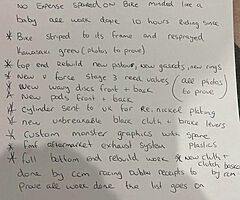 no Expense spared on Bike minded like a
baby all work done 10 hours riding since
* Bike striped to its frame and resprayed
Kawasaki green (photos to prove)
* top end rebuild new piston, new gaskets, new rings
* new v force stage 3 reed valves (all photos
* New wavy discs front + back to prove)
* New pads front + back
* cylinder sent to UK for Re. nickel plating
* new unbreakable black clutch + brake levers
* custom monster graphics with spare
* fmf aftermarket exhaust system plastics
* full bottom end rebuild work * new clutch +
clutch basket
done by ccm racing dublin receipts to by ccm
Prove all work done the list goes on